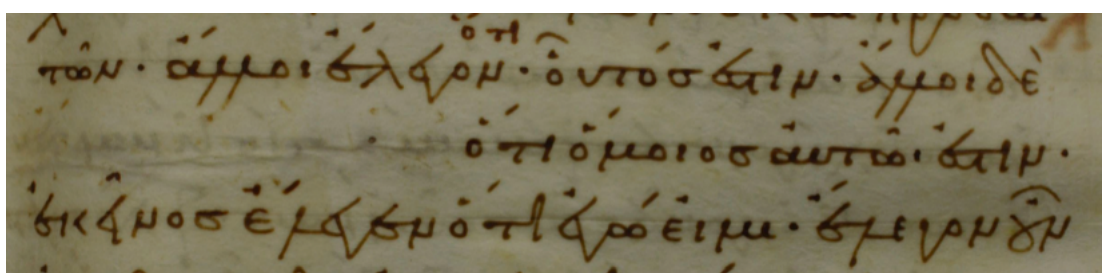 ὅτι
τῶν· ἄλλοι ἔλεγον· οὗτός ἐστιν· ἄλλοι δὲ
ὅτι ὅμοιος αὐτῶ ἐστιν·
ἐκεῖνος ἔλεγεν ὅτι ἐγώ εἰμι· ἔλεγον οὖν